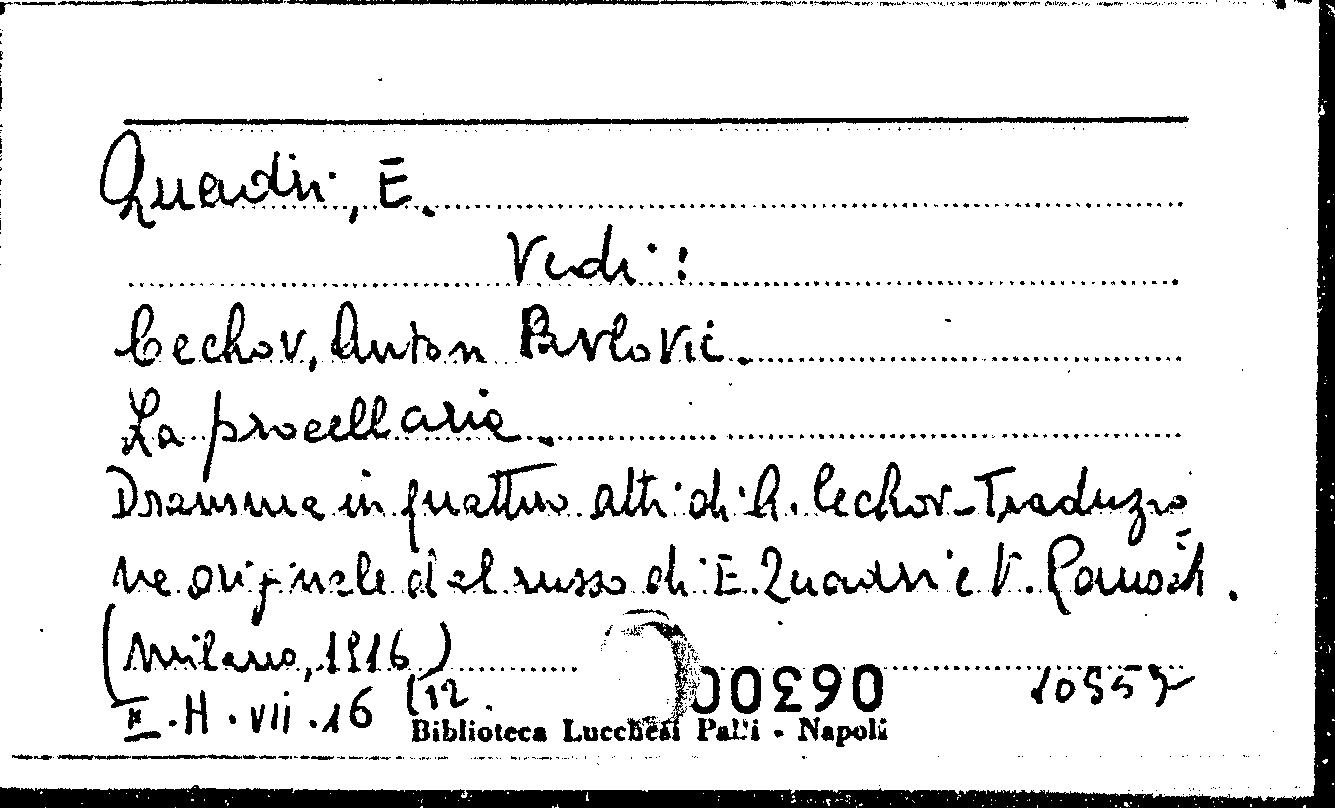 Quadri, E.
Vedi:
Cechov, Anton Pavlovič.
La procellaria.
Dramma in quattro atti di A. Cechov - Traduzio
ne originale dal russo di E. Quadri e V.
(Milano, 1916)
II. H. VII. 16 (12.
00290
10957
Biblioteca Lucchesi Palli - Napoli